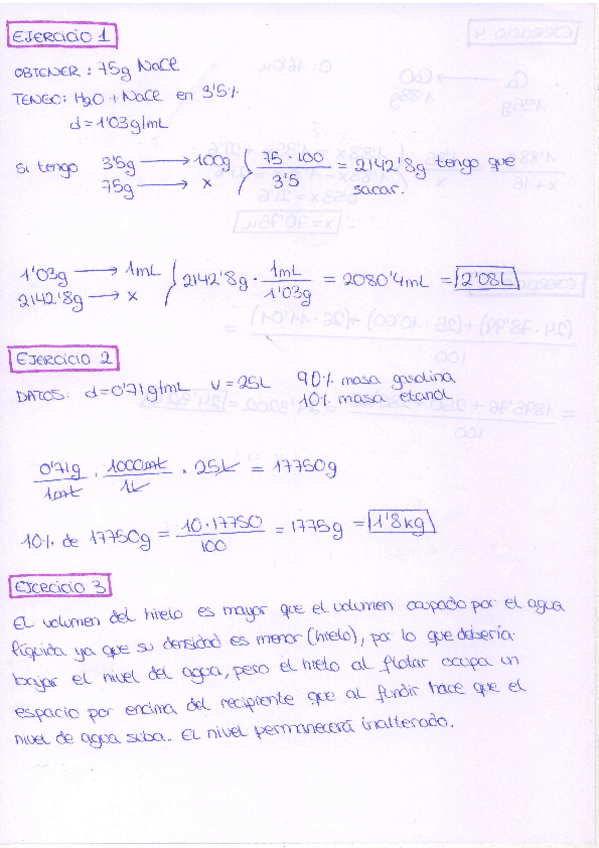 EJERCICIO 1
OBTENER: 75g NaCl
TENGO: H₂O + NaCl en 3'5%
d=1'03g/mL
Si tengo 3'5g → 100g } 75·100 / 3'5 = 2142'8g tengo que
75g → x sacar.
1'03g → 1mL } 2142'8g · 1mL / 1'03g = 2080'4mL = 2'08L
2142'8g → x
EJERCICIO 2
DATOS: d=0'71g/mL V=25L 90% masa gasolina
10% masa etanol
0'71g / 1mL · 1000mL / 1L · 25L = 17750g
10% de 17750g = 10·17750 / 100 = 1775g = 1'8kg
EJERCICIO 3
El volumen del hielo es mayor que el volumen ocupado por el agua
líquida ya que su densidad es menor (hielo), por lo que debería
bajar el nivel del agua, pero el hielo al flotar ocupa un
espacio por encima del recipiente que al fundir hace que el
nivel de agua suba. El nivel permanecerá inalterado.